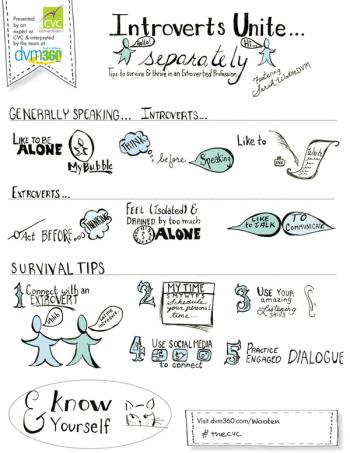 Presented
by an
expert at
CVC & interpreted
by the team at
CVC
dvm360
Introverts Unite...
Hello!
Hi...
separately
Tips to survive & thrive in an Extroverted Profession
Featuring
Sarah Wooten DVM
GENERALLY SPEAKING... INTROVERTS...
LIKE TO BE
ALONE
My Bubble
THINK
before
Speaking
Like to
Write
INK
EXTROVERTS...
Act BEFORE...
THINKING
FEEL (Isolated) &
DRAINED by too much
ALONE
LIKE
to TALK
TO
COMMUNICATE
SURVIVAL TIPS
1 Connect with an
EXTROVERT
Ahhh
Let me
introduce...
2
MY TIME
S M T W T F S
Schedule
your personal
time...
3 USE YOUR
amazing
Listening
SKILLS
4 USE SOCIAL MEDIA
to connect
5 PRACTICE
ENGAGED DIALOGUE
& Know
Yourself
Visit dvm360.com/Wooten
#thecvc